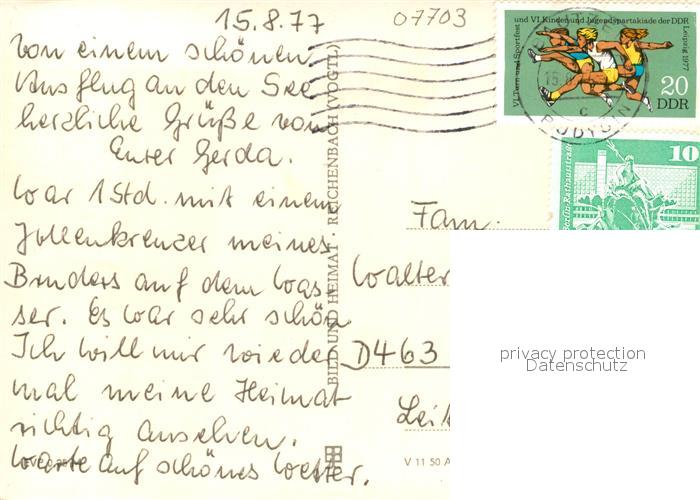 15.8.77
07703
Von einem schönen
Ausflug an den See
herzliche Grüße von
Eurer Gerda.
War 1 Std. mit einem
Jollenkreuzer meines
Bruders auf dem Was-
ser. Es war sehr schön
Ich will mir wieder
mal meine Heimat
richtig ansehen.
Warte auf schönes Wetter.
BILD UND HEIMAT · REICHENBACH (VOGTL)
VI. Turn- und Sportfest und VI. Kinder- und Jugendspartakiade der DDR Leipzig 1977
20
DDR
10
Berlin-Rathausstraße
Fam.
Walter
D463
V 11 50 A
privacy protection
Datenschutz